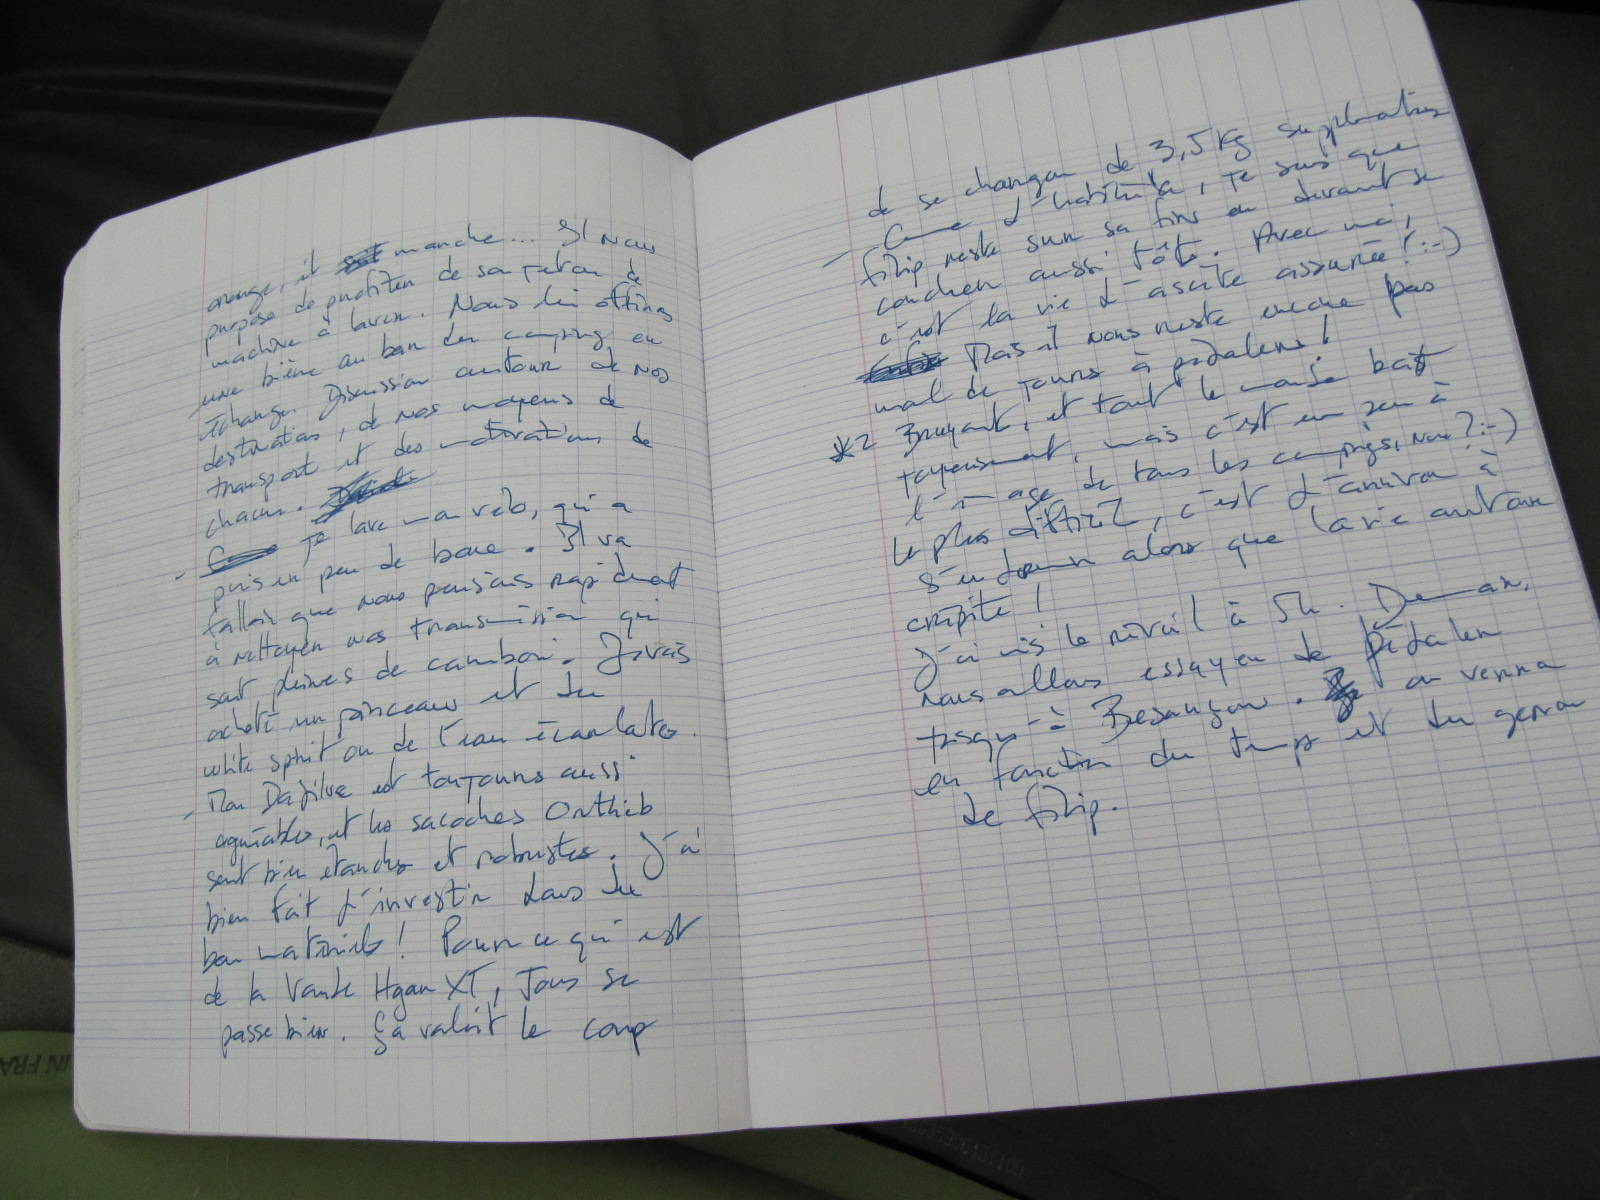 orange, il marche... Il nous
propose de profiter de son jeton de
machine à laver. Nous lui offrons
une bière au bar du camping en
échange. Discussion autour de nos
destinations, de nos moyens de
transport et des motivations de
chacun.
- Je lave mon vélo, qui a
pris un peu de boue. Il va
falloir que nous pensions rapidement
à nettoyer nos transmissions qui
sont pleines de cambouis. J'avais
acheté un pinceau et du
white spirit ou de l'eau écarlate.
- Mon Da Silva est toujours aussi
agréable, et les sacoches Ortlieb
sont bien étanches et robustes. J'ai
bien fait d'investir dans du
bon matériel ! Pour ce qui est
de la Vaude Hogan XT, tous se
passe bien. Ça valait le coup
de se charger de 3,5 kg supplémentaires
- Comme d'habitude, je sais que
filip reste sur sa faim en devant se
coucher aussi tôt. Avec moi,
c'est la vie d'ascète assurée ! :-)
Mais il nous reste encore pas
mal de jours à pédaler !
*2 Bruyant, et tout le monde boit
joyeusement, mais c'est un peu à
l'image de tous les campings, non ? :-)
Le plus difficile, c'est d'arriver à
s'endormir alors que la vie autour
crépite !
J'ai mis le réveil à 5h. Demain,
nous allons essayer de pédaler
jusqu'à Besançon. on verra
en fonction du temps et du genou
de filip.
IN FRA